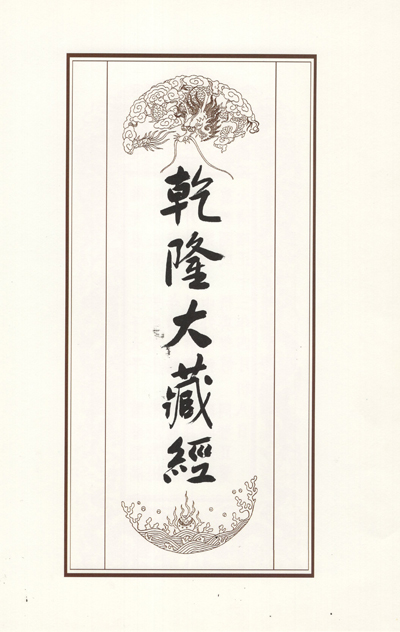 乾隆大藏經